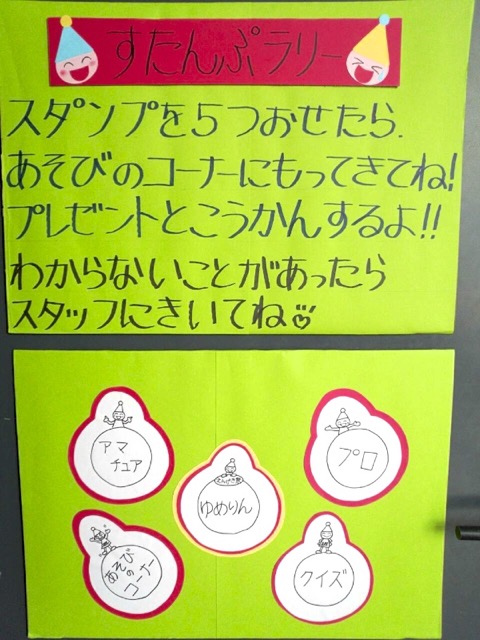 すたんぷラリー
スタンプを5つおせたら.
あそびのコーナーにもってきてね!
プレゼントとこうかんするよ!!
わからないことがあったら
スタッフにきいてね
アマ
チュア
プロ
ゆめりん
あそび
の
コーナー
クイズ